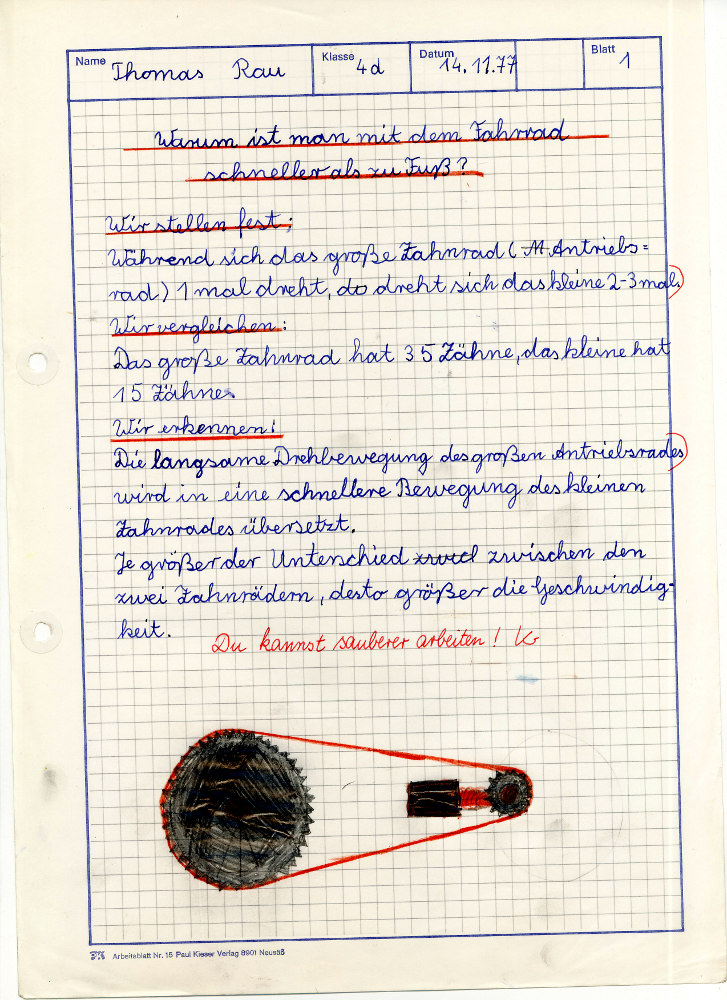 Name Thomas Rau Klasse 4d Datum 14.11.77 Blatt 1
Warum ist man mit dem Fahrrad
schneller als zu Fuß?
Wir stellen fest:
Während sich das große Zahnrad (M. Antriebs=
rad) 1 mal dreht, do dreht sich das kleine 2-3 mal.
Wir vergleichen:
Das große Zahnrad hat 35 Zähne, das kleine hat
15 Zähne.
Wir erkennen:
Die langsame Drehbewegung des großen Antriebsrades
wird in eine schnellere Bewegung des kleinen
Zahnrades übersetzt.
Je größer der Unterschied zwischen den
zwei Zahnrädern, desto größer die Geschwindig-
keit. Du kannst sauberer arbeiten!
Arbeitsblatt Nr. 15 Paul Kieser Verlag 8901 Neusäß